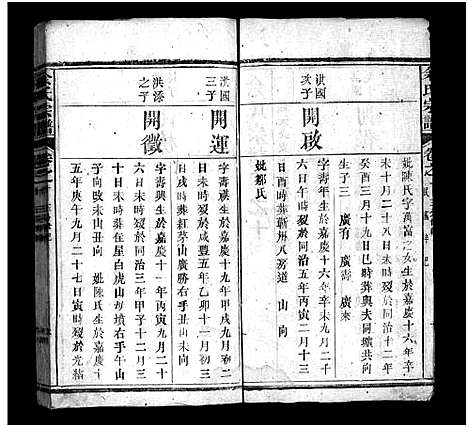 妣陳氏字萬富之女生於嘉慶十六年辛
未十月二十八日未時歿於同治十二年
癸酉三月十九日巳時葬與夫同壙共向
生子三 廣有 廣壽 廣來
洪國
次子
開啟
字壽年生於嘉慶十六年辛未九月二千
日酉時歿於同治十一年丙寅二月十三
日酉時葬蘄州八房道 山 向
妣鄒氏
洪國
三子
開運
字壽漢生於嘉慶十九年甲戌九月初二
日未時歿於咸豐五年乙卯十一月初三
日戌時葬紅茅山廣勝右手丑山未向
洪添
之子
開徵
字壽興生於嘉慶十一年丙寅九月二十
日未時歿於同治三年甲子十二月三
十日未時葬在屋白虎山却墳右手午山
子向改未山丑向 妣陳氏生於嘉慶十
五年庚午九月二十七日寅時歿於光緒
余氏宗譜